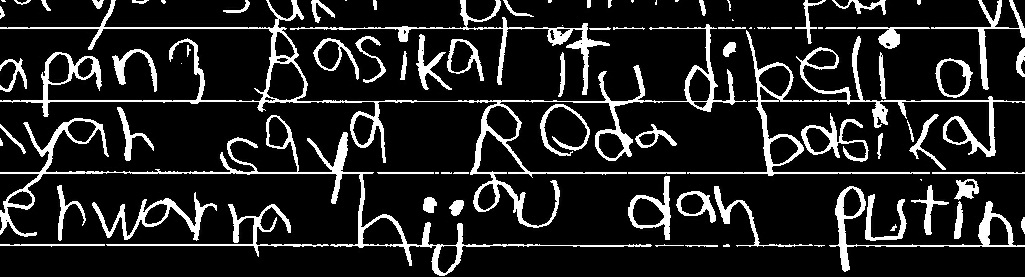 apang Basikal itu dibeli ol
ayah saya Roda basikal
berwarna hijau dan puting